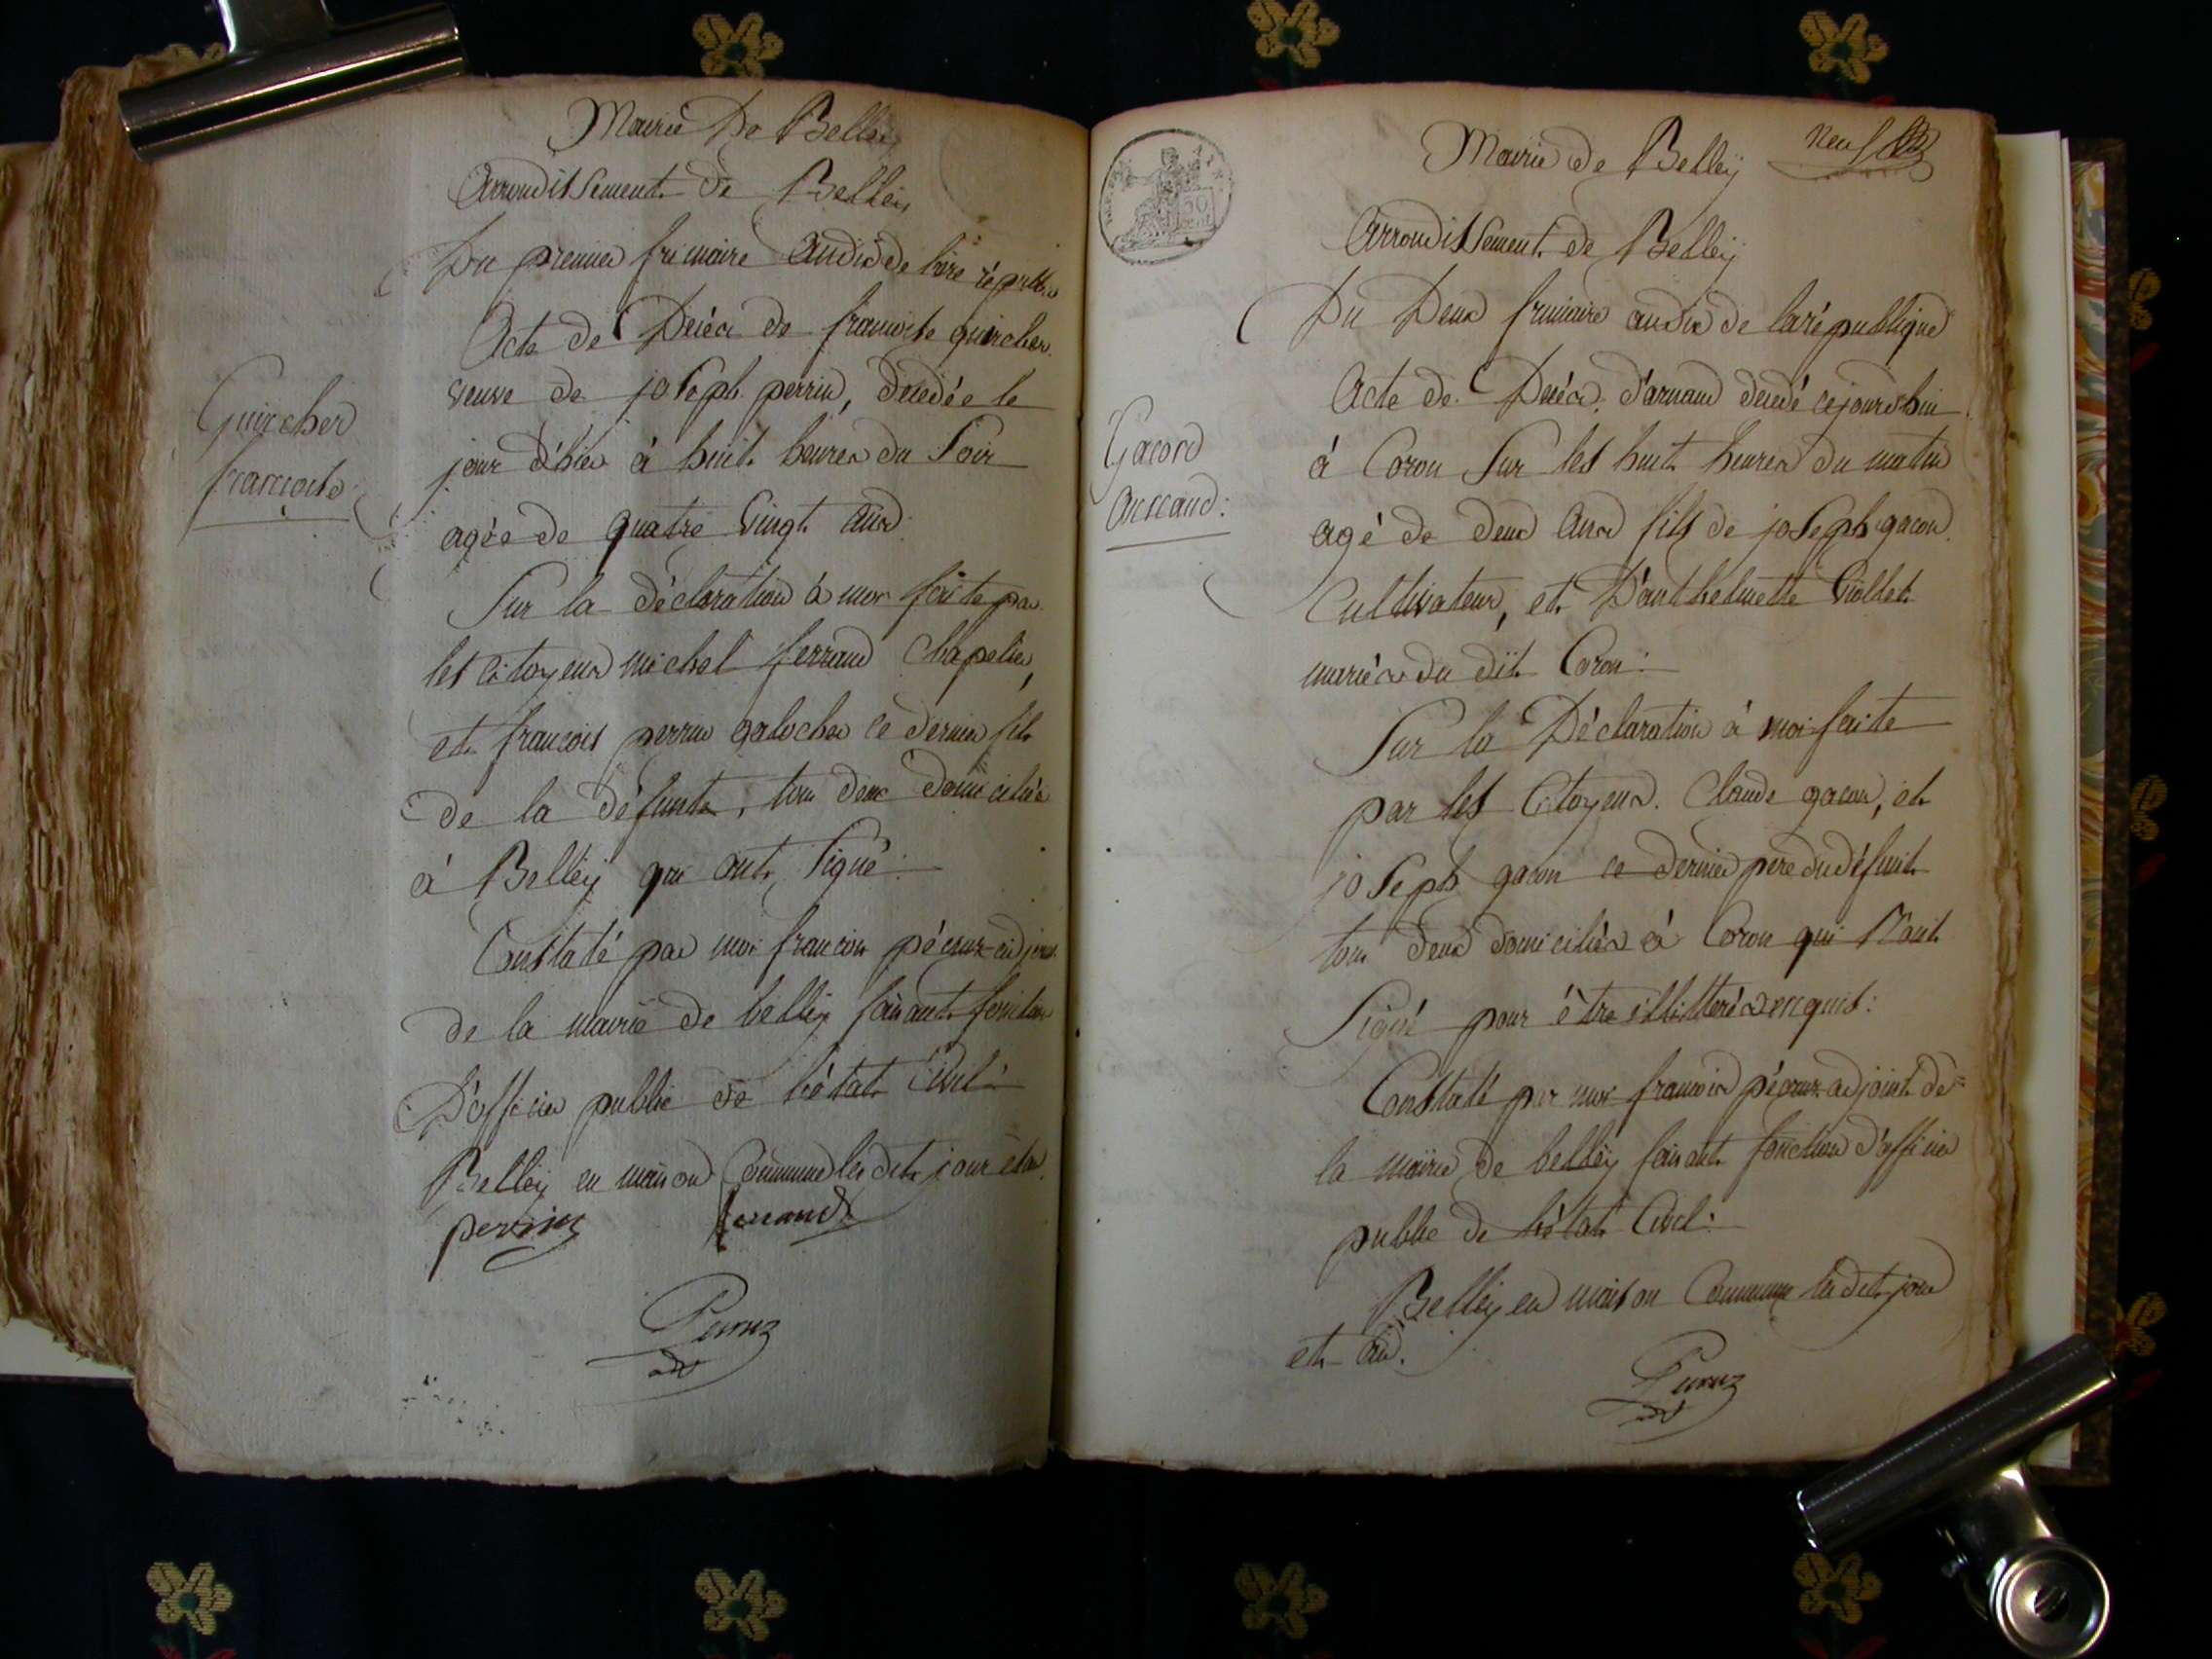 Mairie De Belley
Arrondissement de Belley
Du premier frimaire an dix de l'ère républ.
Acte de Décès de francoise guircher
veuve de joseph perrin, décédée le
jour d'hier à huit heures du soir
agée de quatre vingt ans.
Guircher
francoise
Sur la déclaration à moi faite par
les citoyens michel ferrand Chapelier,
et francois perrin galocher ce dernier fils
de la défunte, tous deux domiciliés
à Belley qui ont signé.
Constaté par moi francois pécruz adjoint
de la mairie de belley faisant fonctions
D'officier public de l'état Civil.
Belley en maison Commune les dits jour et an.
perrin ferrand
Pecruz
Mairie de Belley neuf
50
Arrondissement de Belley
Du Deux frimaire an dix de la république
Acte de Décès d'arnaud décédé cejourdhui
à Coron sur les huit heures du matin
agé de deux ans fils de joseph gacon
Cultivateur, et D'anthelmette Viollet
mariés du dit Coron.
Gacon
arnaud:
Sur la Déclaration à moi faite
par les Citoyens Claude gacon, et
joseph gacon ce dernier pere du défunt
tous deux domiciliés à Coron qui n'ont
signé pour être illitterés enquis:
Constaté par moi francois pécruz adjoint de
la mairie de belley faisant fonction d'officier
public de l'état Civil:
Belley en maison Commune les dits jour
et an.
Pecruz